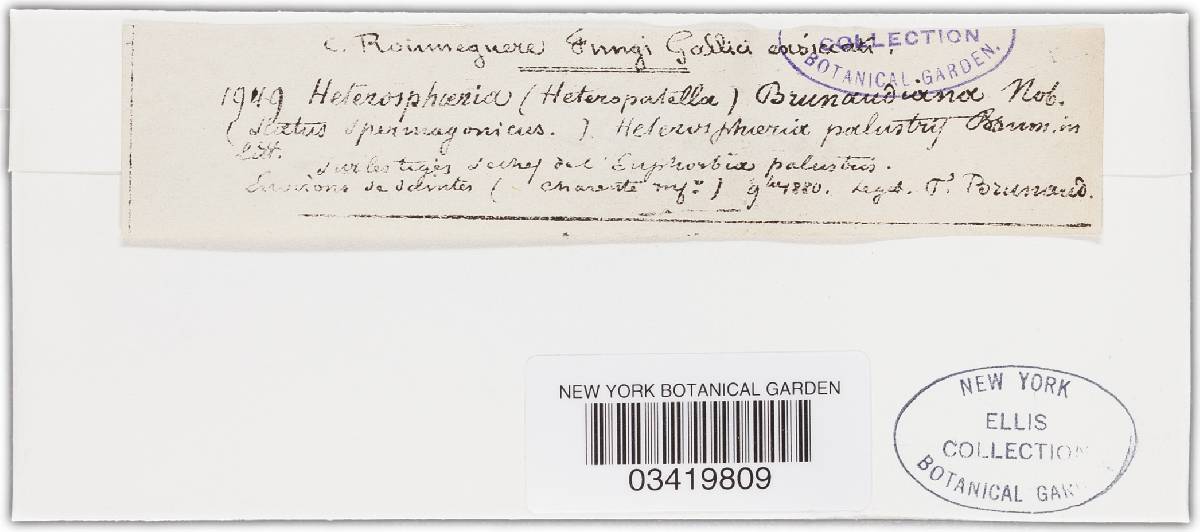 C. Roumeguere Fungi Gallici exsiccati.
COLLECTION
BOTANICAL GARDEN.
1949 Heterosphæria (Heteropatella) Brunaudiana Nob.
(Status Spermogonicus.) Heterosphæria palustris Brun. in
Litt.
Sur les tiges sèches de l'Euphorbia palustris.
Environs de Saintes (Charente infre) 9bre 1880. Leget. P. Brunaud.
NEW YORK BOTANICAL GARDEN
03419809
NEW YORK
ELLIS
COLLECTION
BOTANICAL GAR